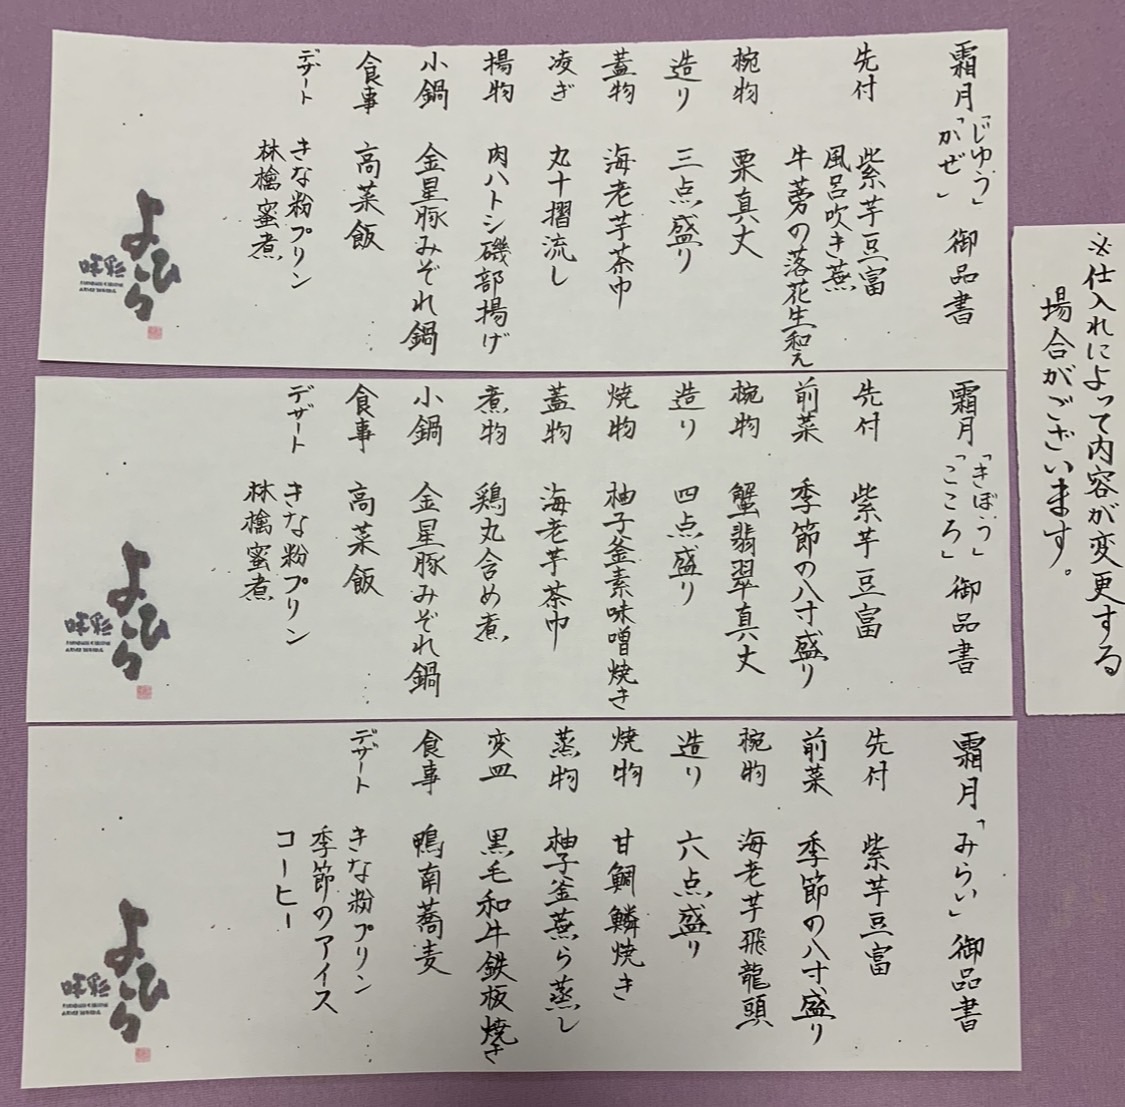 ※仕入れによって内容が変更する
場合がございます。
霜月「じゆう」「かぜ」 御品書
先付 紫芋豆富
風呂吹き蕪
牛蒡の落花生和え
椀物 栗真丈
造り 三点盛り
蓋物 海老芋茶巾
凌ぎ 丸十摺流し
揚物 肉ハトシ磯部揚げ
小鍋 金星豚みぞれ鍋
食事 高菜飯
デザート きな粉プリン
林檎蜜煮
よひら
霜月「きぼう」「こころ」御品書
先付 紫芋豆富
前菜 季節の八寸盛り
椀物 蟹翡翠真丈
造り 四点盛り
焼物 柚子釜素味噌焼き
蓋物 海老芋茶巾
煮物 鶏丸含め煮
小鍋 金星豚みぞれ鍋
食事 高菜飯
デザート きな粉プリン
林檎蜜煮
よひら
霜月「みらい」御品書
先付 紫芋豆富
前菜 季節の八寸盛り
椀物 海老芋飛龍頭
造り 六点盛り
焼物 甘鯛鱗焼き
蒸物 柚子釜蕪ら蒸し
変皿 黒毛和牛鉄板焼き
食事 鴨南蕎麦
デザート きな粉プリン
季節のアイス
コーヒー
よひら